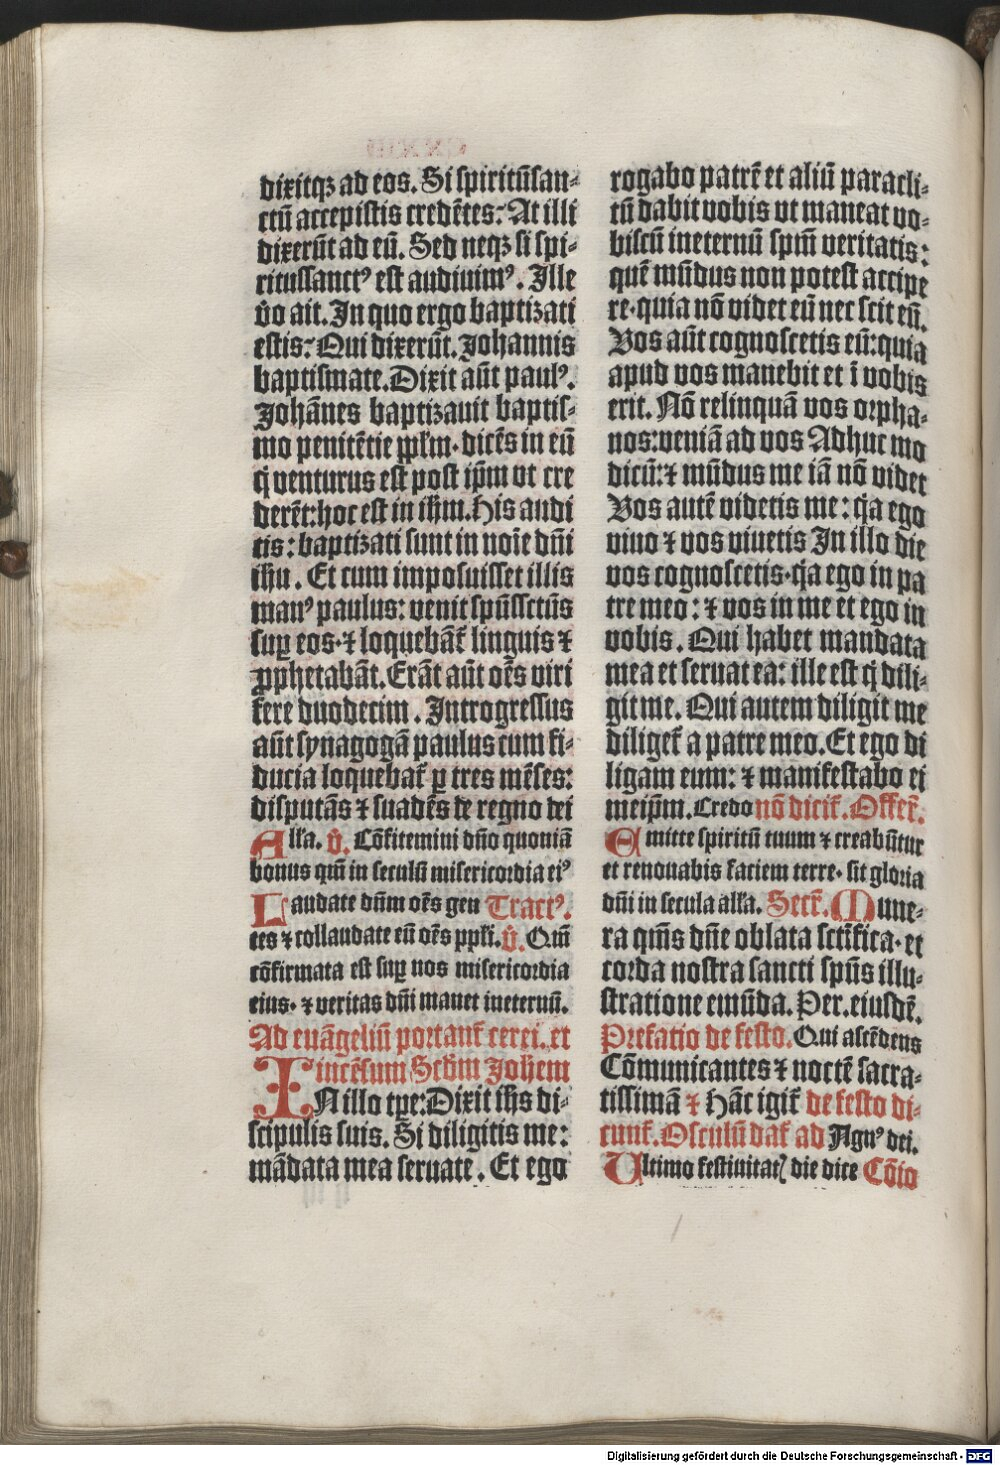 dixitqꝫ ad eos. Si spiritūsan-
ctū accepistis credētes. At illi
dixerūt ad eū. Sed neqꝫ si spi-
ritussanctꝰ est audiuimꝰ. Ille
v̄o ait. In quo ergo baptizati
estis. Qui dixerūt. Johannis
baptismate. Dixit aūt paulꝰ.
Johānes baptizauit baptis-
mo penitētie ppl̄m. dicēs in eū
q̇ venturus est post ip̄m vt cre
derēt: hoc est in ih̄m. His audi
tis: baptizati sunt in noīe dn̄i
ih̄u. Et cum imposuisset illis
manꝰ paulus: venit sp̄ūssctūs
suꝑ eos. ⁊ loquebāt᷑ linguis ⁊
ꝓphetabāt. Erāt aūt oēs viri
fere duodecim. Introgressus
aūt synagogā paulus cum fi-
ducia loquebat᷑ ꝑ tres mēses:
disputās ⁊ suadēs de regno dei
Alla. v̄. Cōfitemini dn̄o quoniā
bonus qm̄ in seculū misericordia eiꝰ
Laudate dn̄m oēs gen Tractꝰ.
tes ⁊ collaudate eū oēs pplī. v̄. Qm̄
cōfirmata est suꝑ nos misericordia
eius. ⁊ veritas dn̄i manet ineternū.
Ad euāgeliū portant᷑ cerei. et
incēsum Scd̄m Johem
IN illo tꝑe: Dixit ih̄s di-
scipulis suis. Si diligitis me:
mādata mea seruate. Et ego
rogabo patrē et aliū paracli-
tū dabit vobis vt maneat vo-
biscū ineternū spm̄ veritatis:
quē mūdus non potest accipe
re. quia nō videt eū nec scit eū.
Vos aūt cognoscetis eū: quia
apud vos manebit et ī vobis
erit. Nō relinquā vos orpha-
nos: veniā ad vos Adhuc mo
dicū: ⁊ mūdus me iā nō videt
Vos autē videtis me: q̇a ego
viuo ⁊ vos viuetis In illo die
vos cognoscetis. q̇a ego in pa
tre meo: ⁊ vos in me et ego in
vobis. Qui habet mandata
mea et seruat ea: ille est q̇ dili-
git me. Qui autem diligit me
diliget᷑ a patre meo. Et ego di
ligam eum: ⁊ manifestabo ei
meip̄m. Credo nō dicit᷑. Offer̄.
Emitte spiritū tuum ⁊ creabūtur
et renouabis faciem terre. sit gloria
dn̄i in secula alla. Secr̄. Mune-
ra qm̄s dn̄e oblata sctīfica. et
corda nostra sancti spūs illu-
stratione emūda. Per. eiusdē.
Prefatio de festo. Qui ascēdens
Cōmunicantes ⁊ noctē sacra-
tissimā ⁊ Hāc igit᷑ de festo di-
cunt᷑. Osculū dat᷑ ad Agnꝰ dei.
Vltimo festiuitatꝭ die dice Cōio
Digitalisierung gefördert durch die Deutsche Forschungsgemeinschaft - DFG